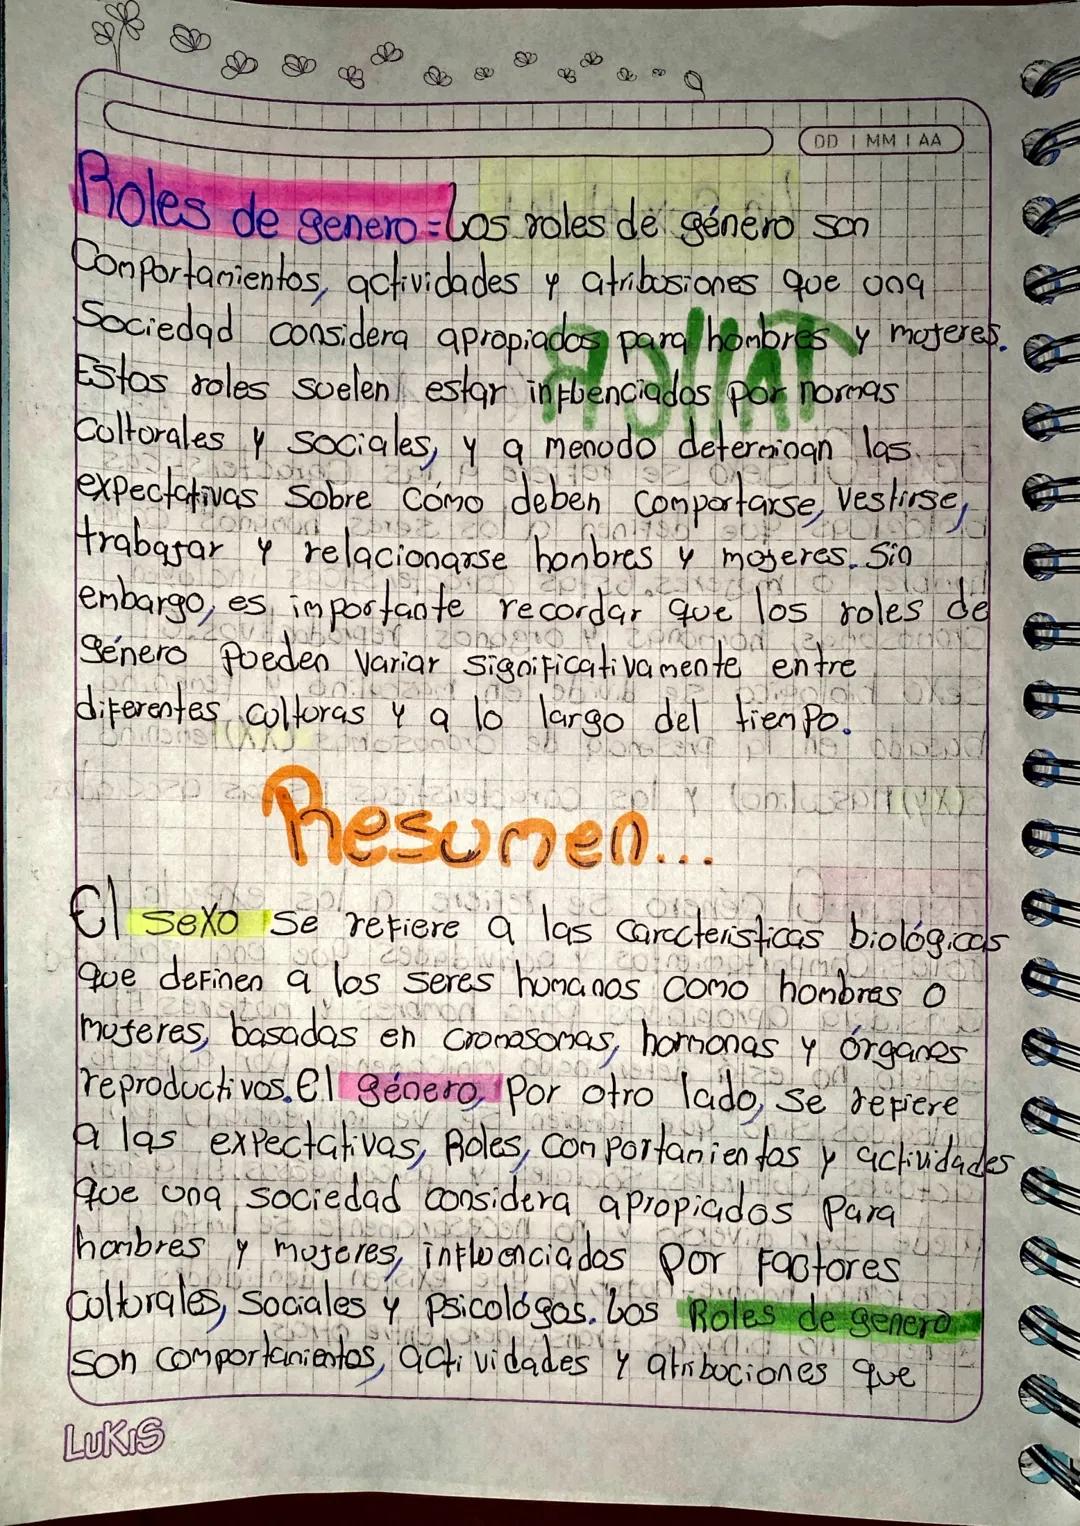 DD | MM | AA
Roles de genero = Los roles de género son
Comportamientos, actividades y atribusiones que una
Sociedad considera apropiados para hombres y mujeres.
Estos roles suelen estar influenciados por normas
Culturales y sociales, y a menudo determinan las
expectativas sobre cómo deben comportarse, vestirse,
trabajar y relacionarse honbres y mujeres. Sin
embargo, es importante recordar que los roles de
género pueden variar significativamente entre
diferentes culturas y a lo largo del tiempo.
Resumen...
El sexo se refiere a las caracteristicas biológicas
que definen a los seres humanos como hombres o
mujeres, basadas en cromosomas, hormonas y órganos
reproductivos. El género, por otro lado, se refiere
a las expectativas, Roles, comportamientos y actividades
que una sociedad considera apropiados para
hombres y mujeres, influenciados por factores
culturales, sociales y psicológos. Los Roles de genero
son comportamientos, actividades y atribuciones que
LUKIS